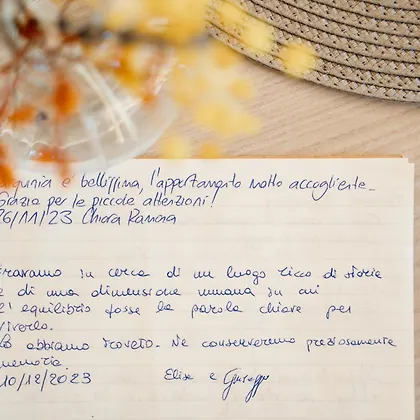 è bellissima, l'appartamento molto accogliente_
Grazie per le piccole attenzioni!
26/11/23 Chiara
in cerca di un luogo ricco di storia
e di una dimensione umana in cui
l'equilibrio fosse la parola chiave per
viverlo.
abbiamo trovato. Ne conserveremo preziosamente
memoria.
10/12/2023 Elisa e Giuseppe